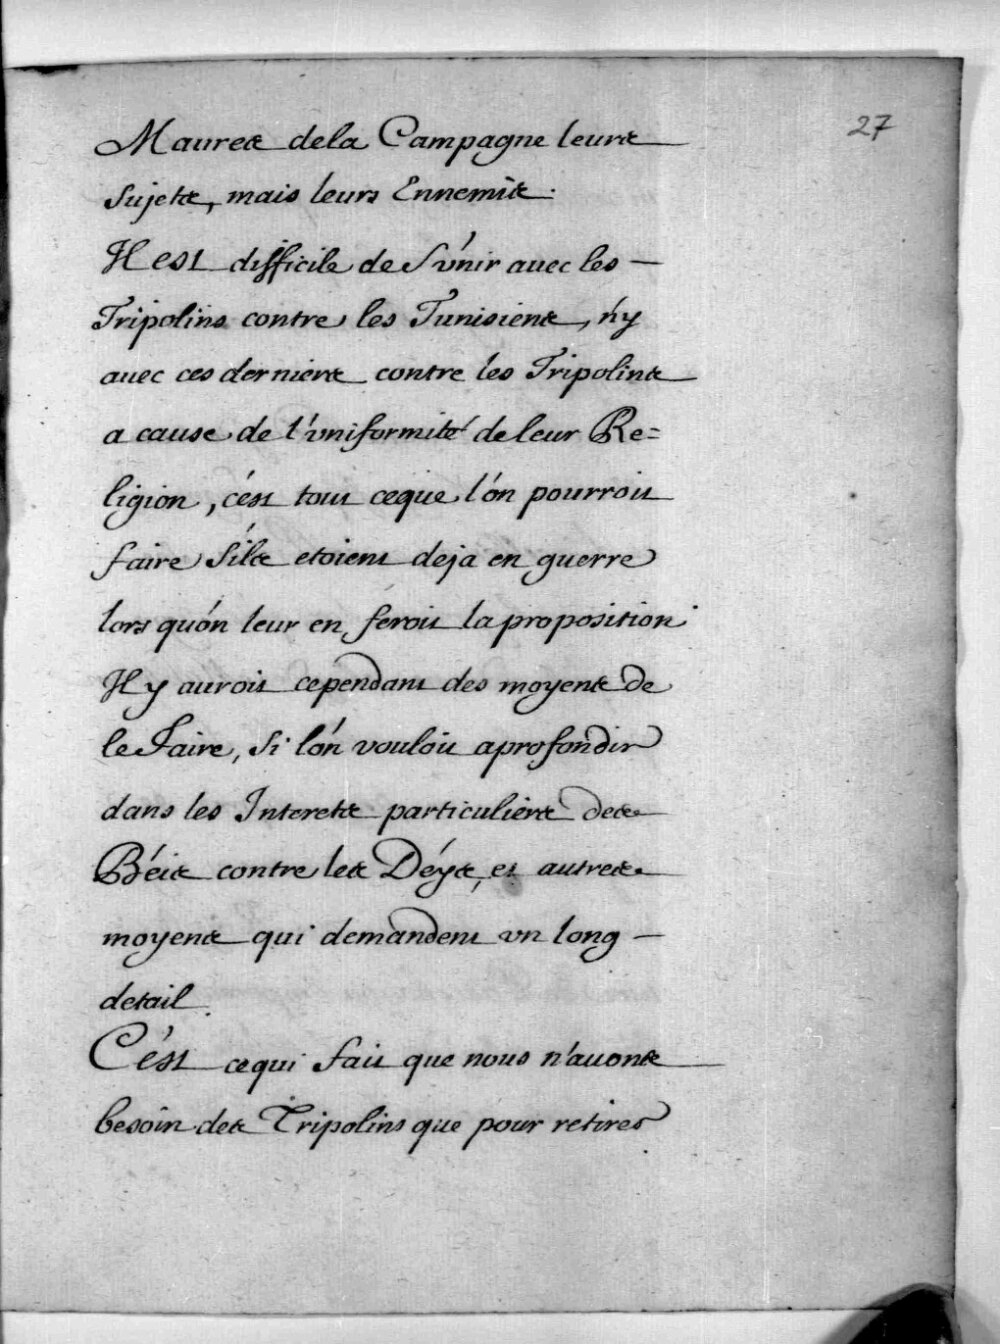 27
Maures dela Campagne leurs
Sujets, mais leurs Ennemis.
Il est difficile de S'vnir auec les —
Tripolins contre les Tunisiens, n'y
auec ces derniers contre les Tripolins
a cause de l'vniformité de leur Re=
ligion, c'ést tout ceque l'ón pourroit
faire S'ils etoient deja en guerre
lors qu'ón leur en feroit la proposition.
Il y auroit cependant des moyens de
le Faire, Si l'ón vouloit aprofondir
dans les Interets particuliers des
Béis contre les Déÿs, et autres
moyens qui demandent vn long —
detail.
C'ést cequi fait que nous n'auons
besoin des Tripolins que pour retirer